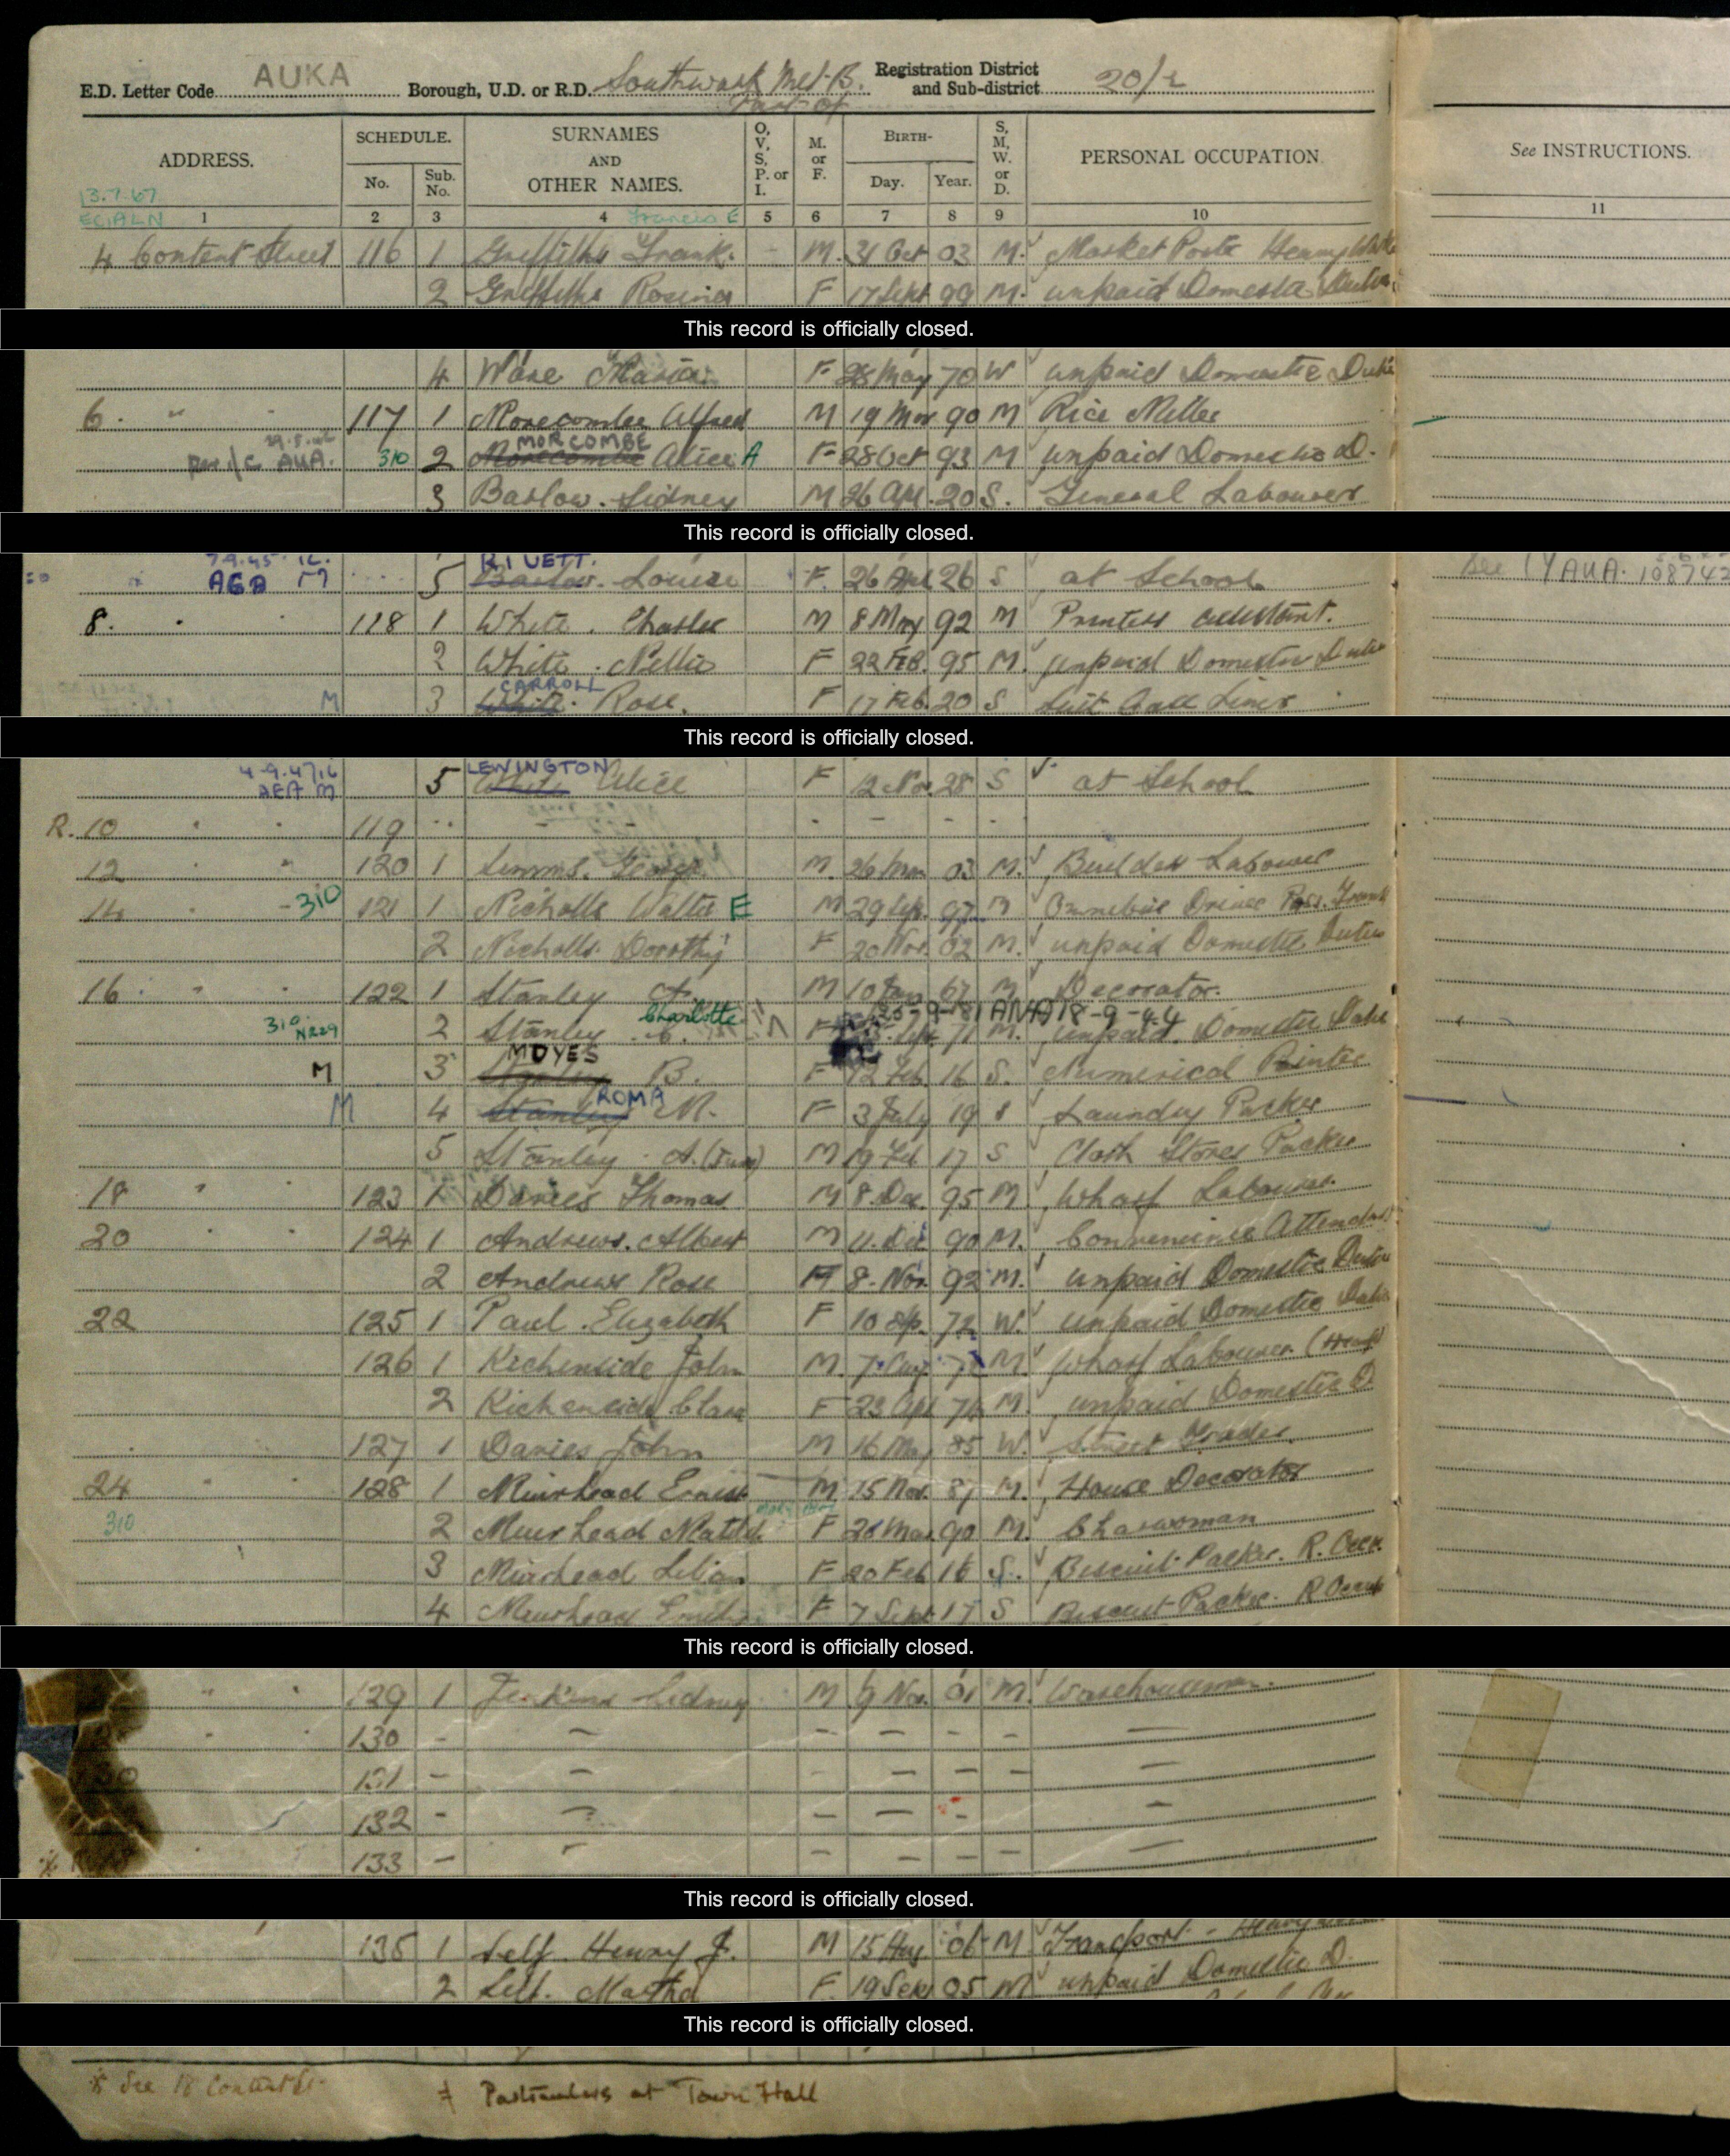 E.D. Letter Code AUKA Borough, U.D. or R.D. Southwark Met. B. Registration District and Sub-district 20/2
Part of
ADDRESS. SCHEDULE. SURNAMES AND OTHER NAMES. O, V, S, P. or I. M. or F. BIRTH- S, M, W. or D. PERSONAL OCCUPATION See INSTRUCTIONS.
No. Sub. No. Day. Year.
13.7.67
ECIALN 1 2 3 4 Francis E 5 6 7 8 9 10 11
4 Content Street 116 1 Griffiths Frank. - M. 31 Oct 03 M. Market Porter Heavy
2 Griffiths Rosina F 17 Sept 99 M. unpaid Domestic Duties
This record is officially closed.
4 Ware Maria F 28 May 70 W unpaid Domestic Duties
6. " 117 1 Morecombe Alfred M 19 Mar 90 M Rice Miller
MORCOMBE
AUA. 310 2 Morecombe Alice A F 28 Oct 93 M unpaid Domestic D.
3 Barlow. Sidney M 26 Apl. 20 S. General Labourer
This record is officially closed.
RIVETT.
AGD M 5 Barlow. Louise F. 26 Apl 26 S at School See AUA. 108742
8. 118 1 White. Charles M 8 May 92 M Printers assistant.
2 White. Nellie F 22 Feb. 95 M. unpaid Domestic Duties
CARROLL
M 3 White. Rose. F 17 Feb. 20 S
This record is officially closed.
4-9-47 LEWINGTON
AEA M 5 White Alice F 12 Nov. 28 S at School
R. 10 " 119 - - - - -
12 " 120 1 Simms. George. M. 26 Mar 03 M. Builders Labourer
14 310 121 1 Nicholls Walter E M 29 Sep. 97 M Omnibus Driver
2 Nicholls Dorothy F 20 Nov. 02 M. unpaid Domestic Duties
16 " 122 1 Stanley A. M 10 Jan 67 M Decorator.
Charlotte
310 NR29 2 Stanley C. F Sept 71 M. unpaid Domestic Duties
MOYES
M 3 Stanley B. F 12 Feb 16 S. Numerical Printer
ROMA
M 4 Stanley M. F 3 July 19 S Laundry Packer
5 Stanley. A. (Jun) M 19 Feb 17 S Cloth Stores Packer
18 " 123 1 Davies Thomas. M 8. Dec. 95 M. Wharf Labourer.
20 124 1 Andrews. Albert M 11. Dec 90 M. Convenience Attendant
2 Andrews Rose F 8. Nov. 92 M. unpaid Domestic Duties
22 125 1 Paul. Elizabeth F 10 Sp. 72 W. unpaid Domestic Duties
126 1 Richenside John M. 7. Aug. M. Wharf Labourer (Heavy)
2 Richenside Clara F 23 Apl 74 M. unpaid Domestic D
127 1 Davies John M 16 May 85 W. Street Trader.
24 " 128 1 Muirhead Ernest M. 15 Nov. 87 M. House Decorator
310 2 Muirhead Matild. F 26 Mar 90 M. Charwoman
3 Muirhead Lilian F 20 Feb 16 S. Biscuit Packer. R. Occ.
4 Muirhead Emily F 7 Sept 17 S Biscuit Packer. R Occ
This record is officially closed.
" 129 1 Jenkins Sidney M 9 Nov. 01 M. Warehouseman.
130 - - - - - - -
131 - - - - - -
132 - - - - - -
133 - - - - - -
This record is officially closed.
135 1 Self. Henry J. M 15 Aug 06 M Transport - Heavy
2 Self. Martha F. 19 Sep 05 M unpaid Domestic D.
This record is officially closed.
* See 18 Content St. ≠ Particulars at Town Hall